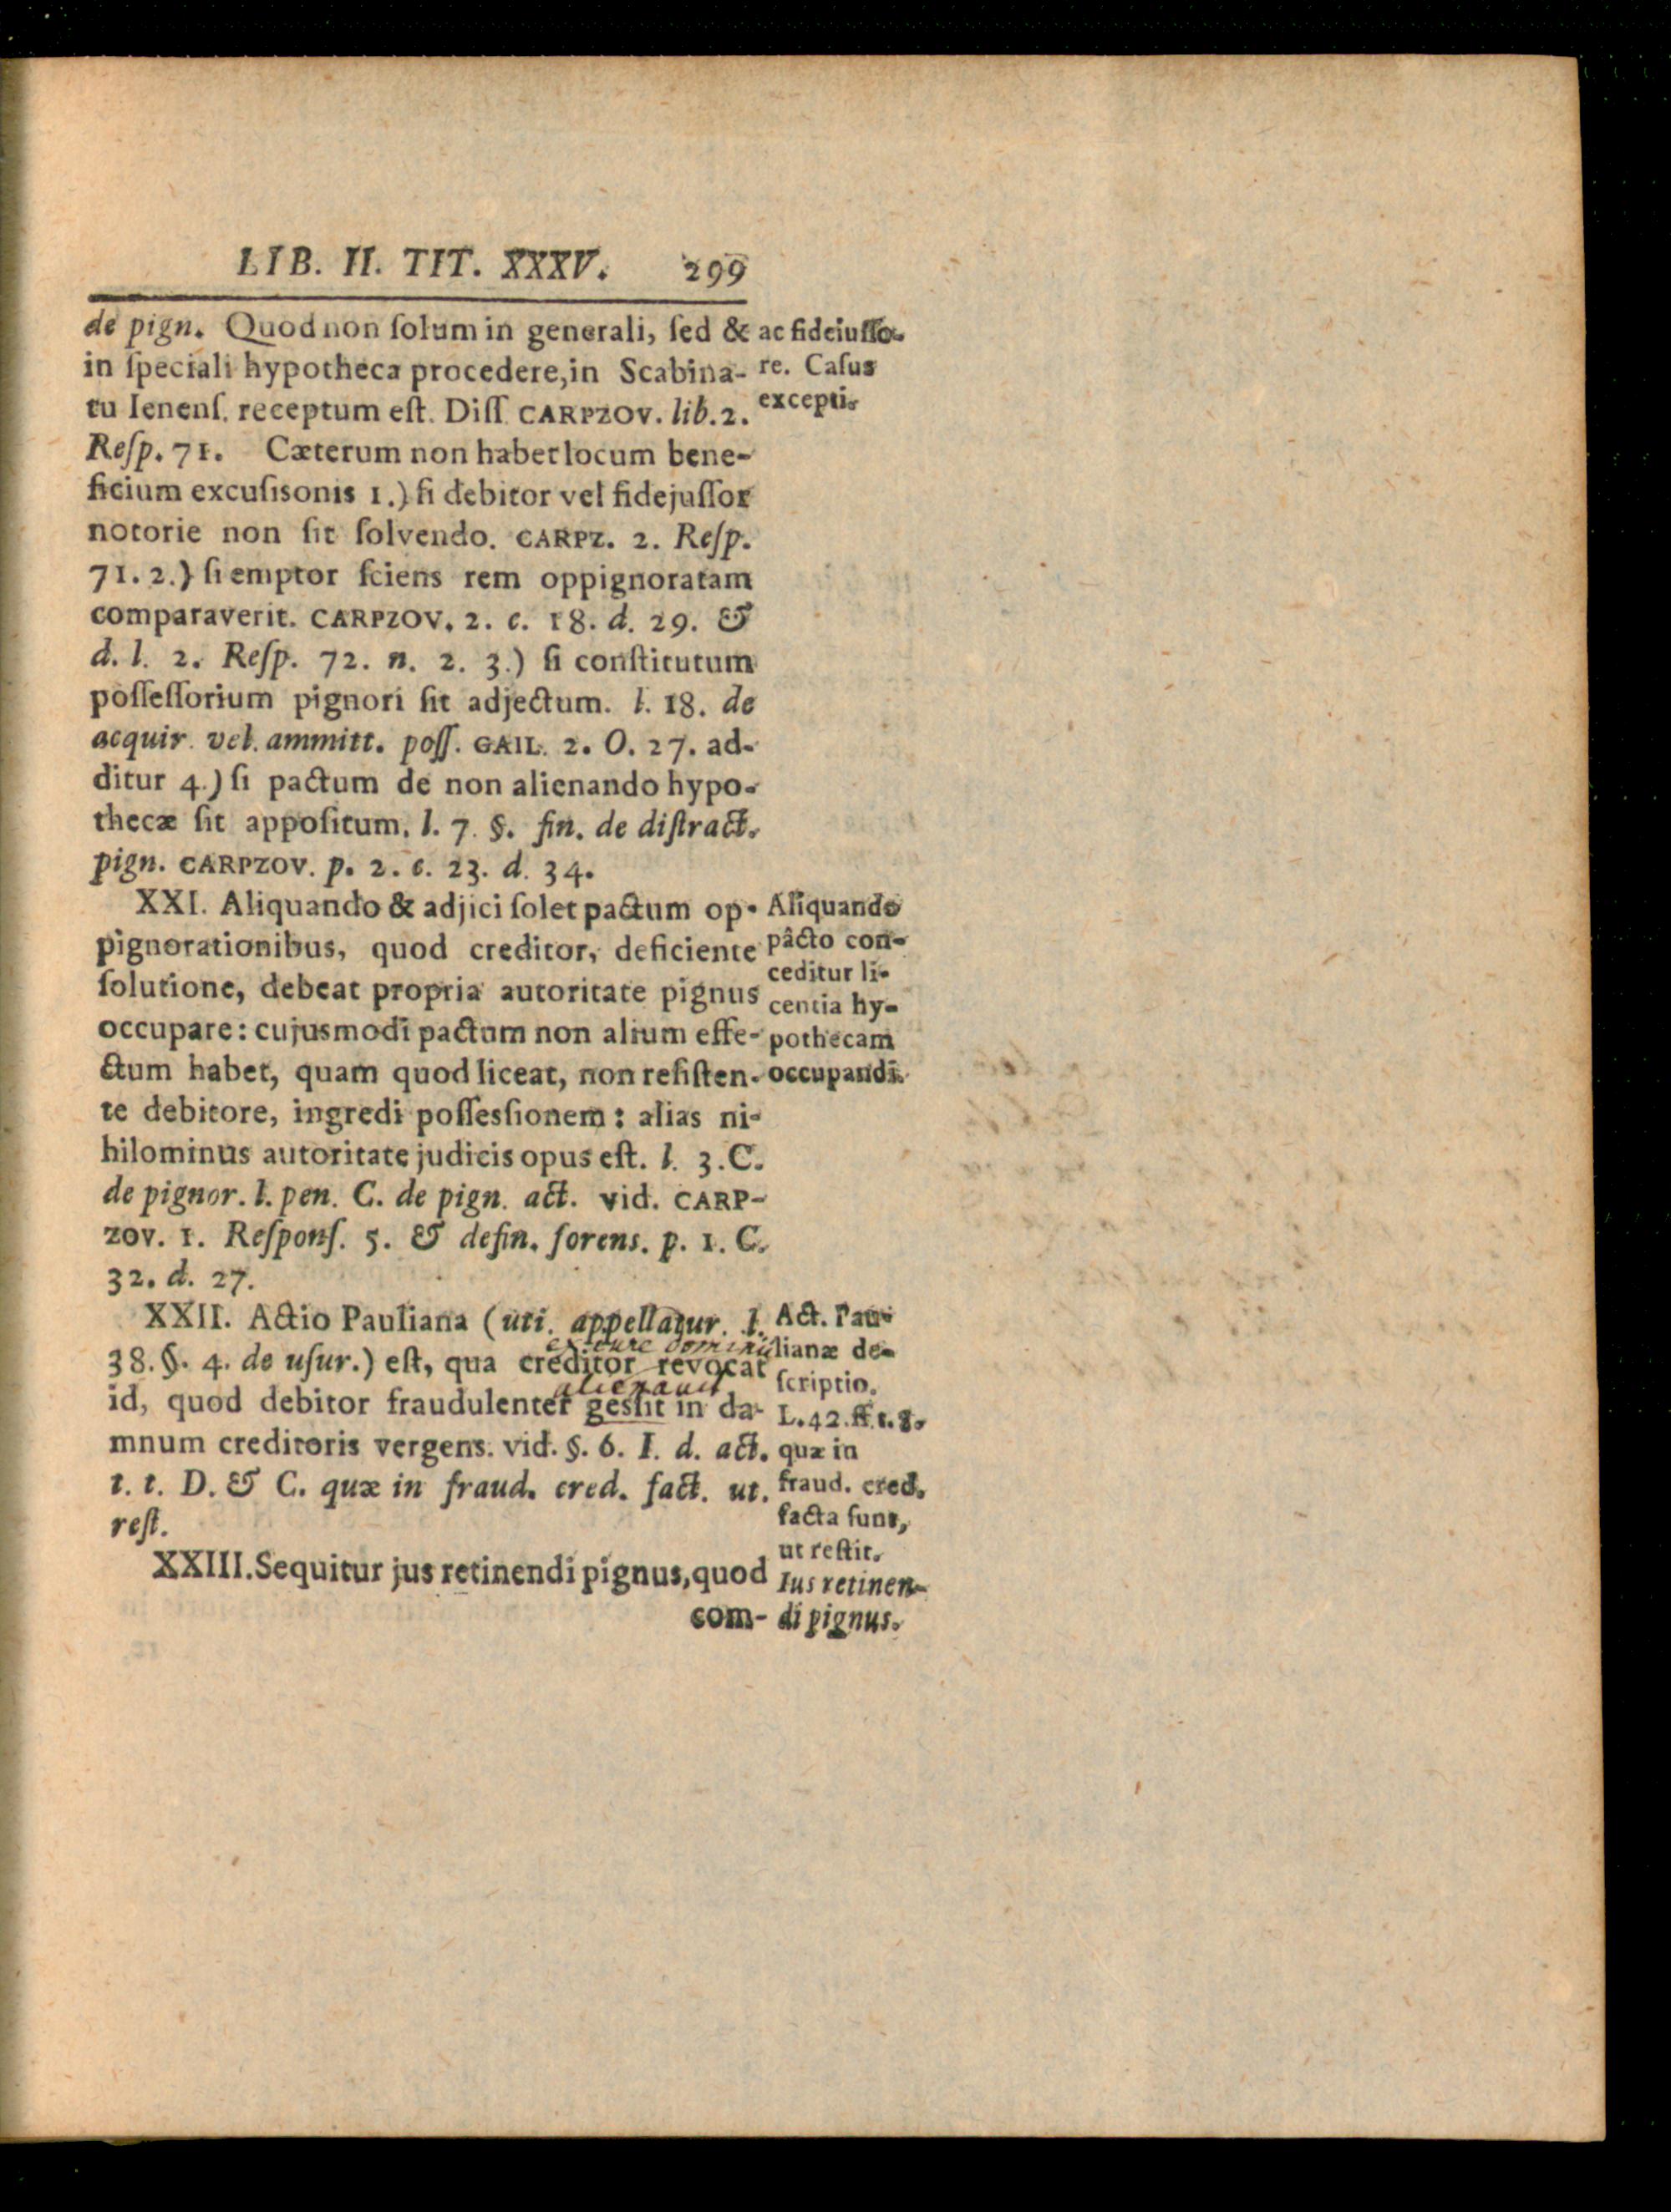 LIB. II. TIT. XXXV. 299
de pign. Quod non ſolum in generali, ſed &
in ſpeciali hypotheca procedere, in Scabina-
tu Ienenſ. receptum eſt. Diſſ. CARPZOV. lib. 2.
Reſp. 71. Cæterum non habet locum bene-
ficium excuſisonis 1.) ſi debitor vel fidejuſſor
notorie non ſit ſolvendo. CARPZ. 2. Reſp.
71. 2.) ſi emptor ſciens rem oppignoratam
comparaverit. CARPZOV. 2. c. 18. d. 29. &
d. l. 2. Reſp. 72. n. 2. 3.) ſi conſtitutum
poſſeſſorium pignori ſit adjectum. l. 18. de
acquir. vel. ammitt. poſſ. GAIL. 2. O. 27. ad-
ditur 4.) ſi pactum de non alienando hypo-
thecæ ſit appoſitum. l. 7. §. fin. de diſtract.
pign. CARPZOV. p. 2. c. 23. d. 34.
XXI. Aliquando & adjici ſolet pactum op-
pignorationibus, quod creditor, deficiente
ſolutione, debeat propria autoritate pignus
occupare: cujusmodi pactum non alium effe-
ctum habet, quam quod liceat, non reſiſten-
te debitore, ingredi poſſesſionem: alias ni-
hilominus autoritate judicis opus eſt. l. 3. C.
de pignor. l. pen. C. de pign. act. vid. CARP-
ZOV. 1. Reſponſ. 5. & defin. forens. p. 1. C.
32. d. 27.
XXII. Actio Pauliana (uti. appellatur. l.
ex iure dominii
38. §. 4. de uſur.) eſt, qua creditor revocat
alienavit
id, quod debitor fraudulenter gesſit in da-
mnum creditoris vergens. vid. §. 6. I. d. act.
t. t. D. & C. quæ in fraud. cred. fact. ut.
reſt.
XXIII. Sequitur jus retinendi pignus, quod
com-
ac fideiuſſo-
re. Caſus
excepti.
Aliquando
pâcto con-
ceditur li-
centia hy-
pothecam
occupandi.
Act. Pau-
lianæ de-
ſcriptio.
L. 42. ff. t. 8.
quæ in
fraud. cred.
facta ſunt,
ut reſtit.
Ius retinen-
di pignus.